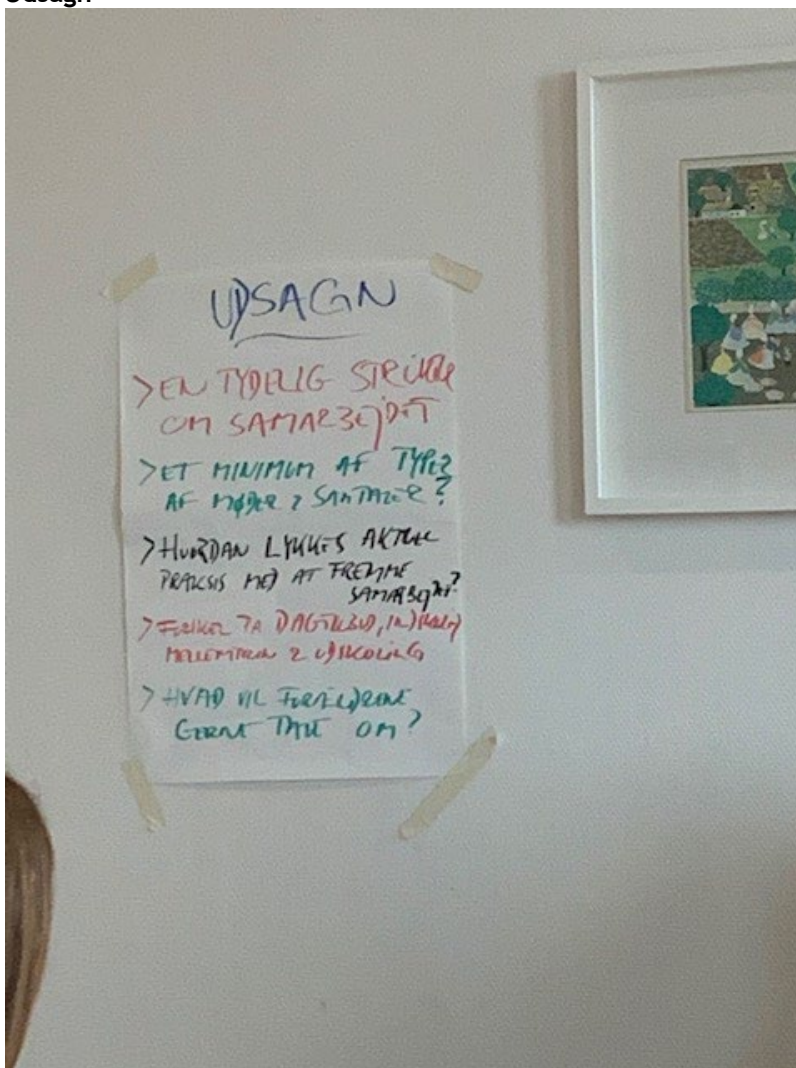 UDSAGN
> EN TYDELIG STRUKTUR
OM SAMARBEJDET
> ET MINIMUM AF TYPER
AF MØDER & SAMTALER?
> HVORDAN LYKKES AKTUEL
PRAKSIS MED AT FREMME
SAMARBEJDET?
> DAGTILBUD, INDSKOLING
MELLEMTRIN & UDSKOLING
> HVAD VIL FORÆLDRENE
GERNE TALE OM?